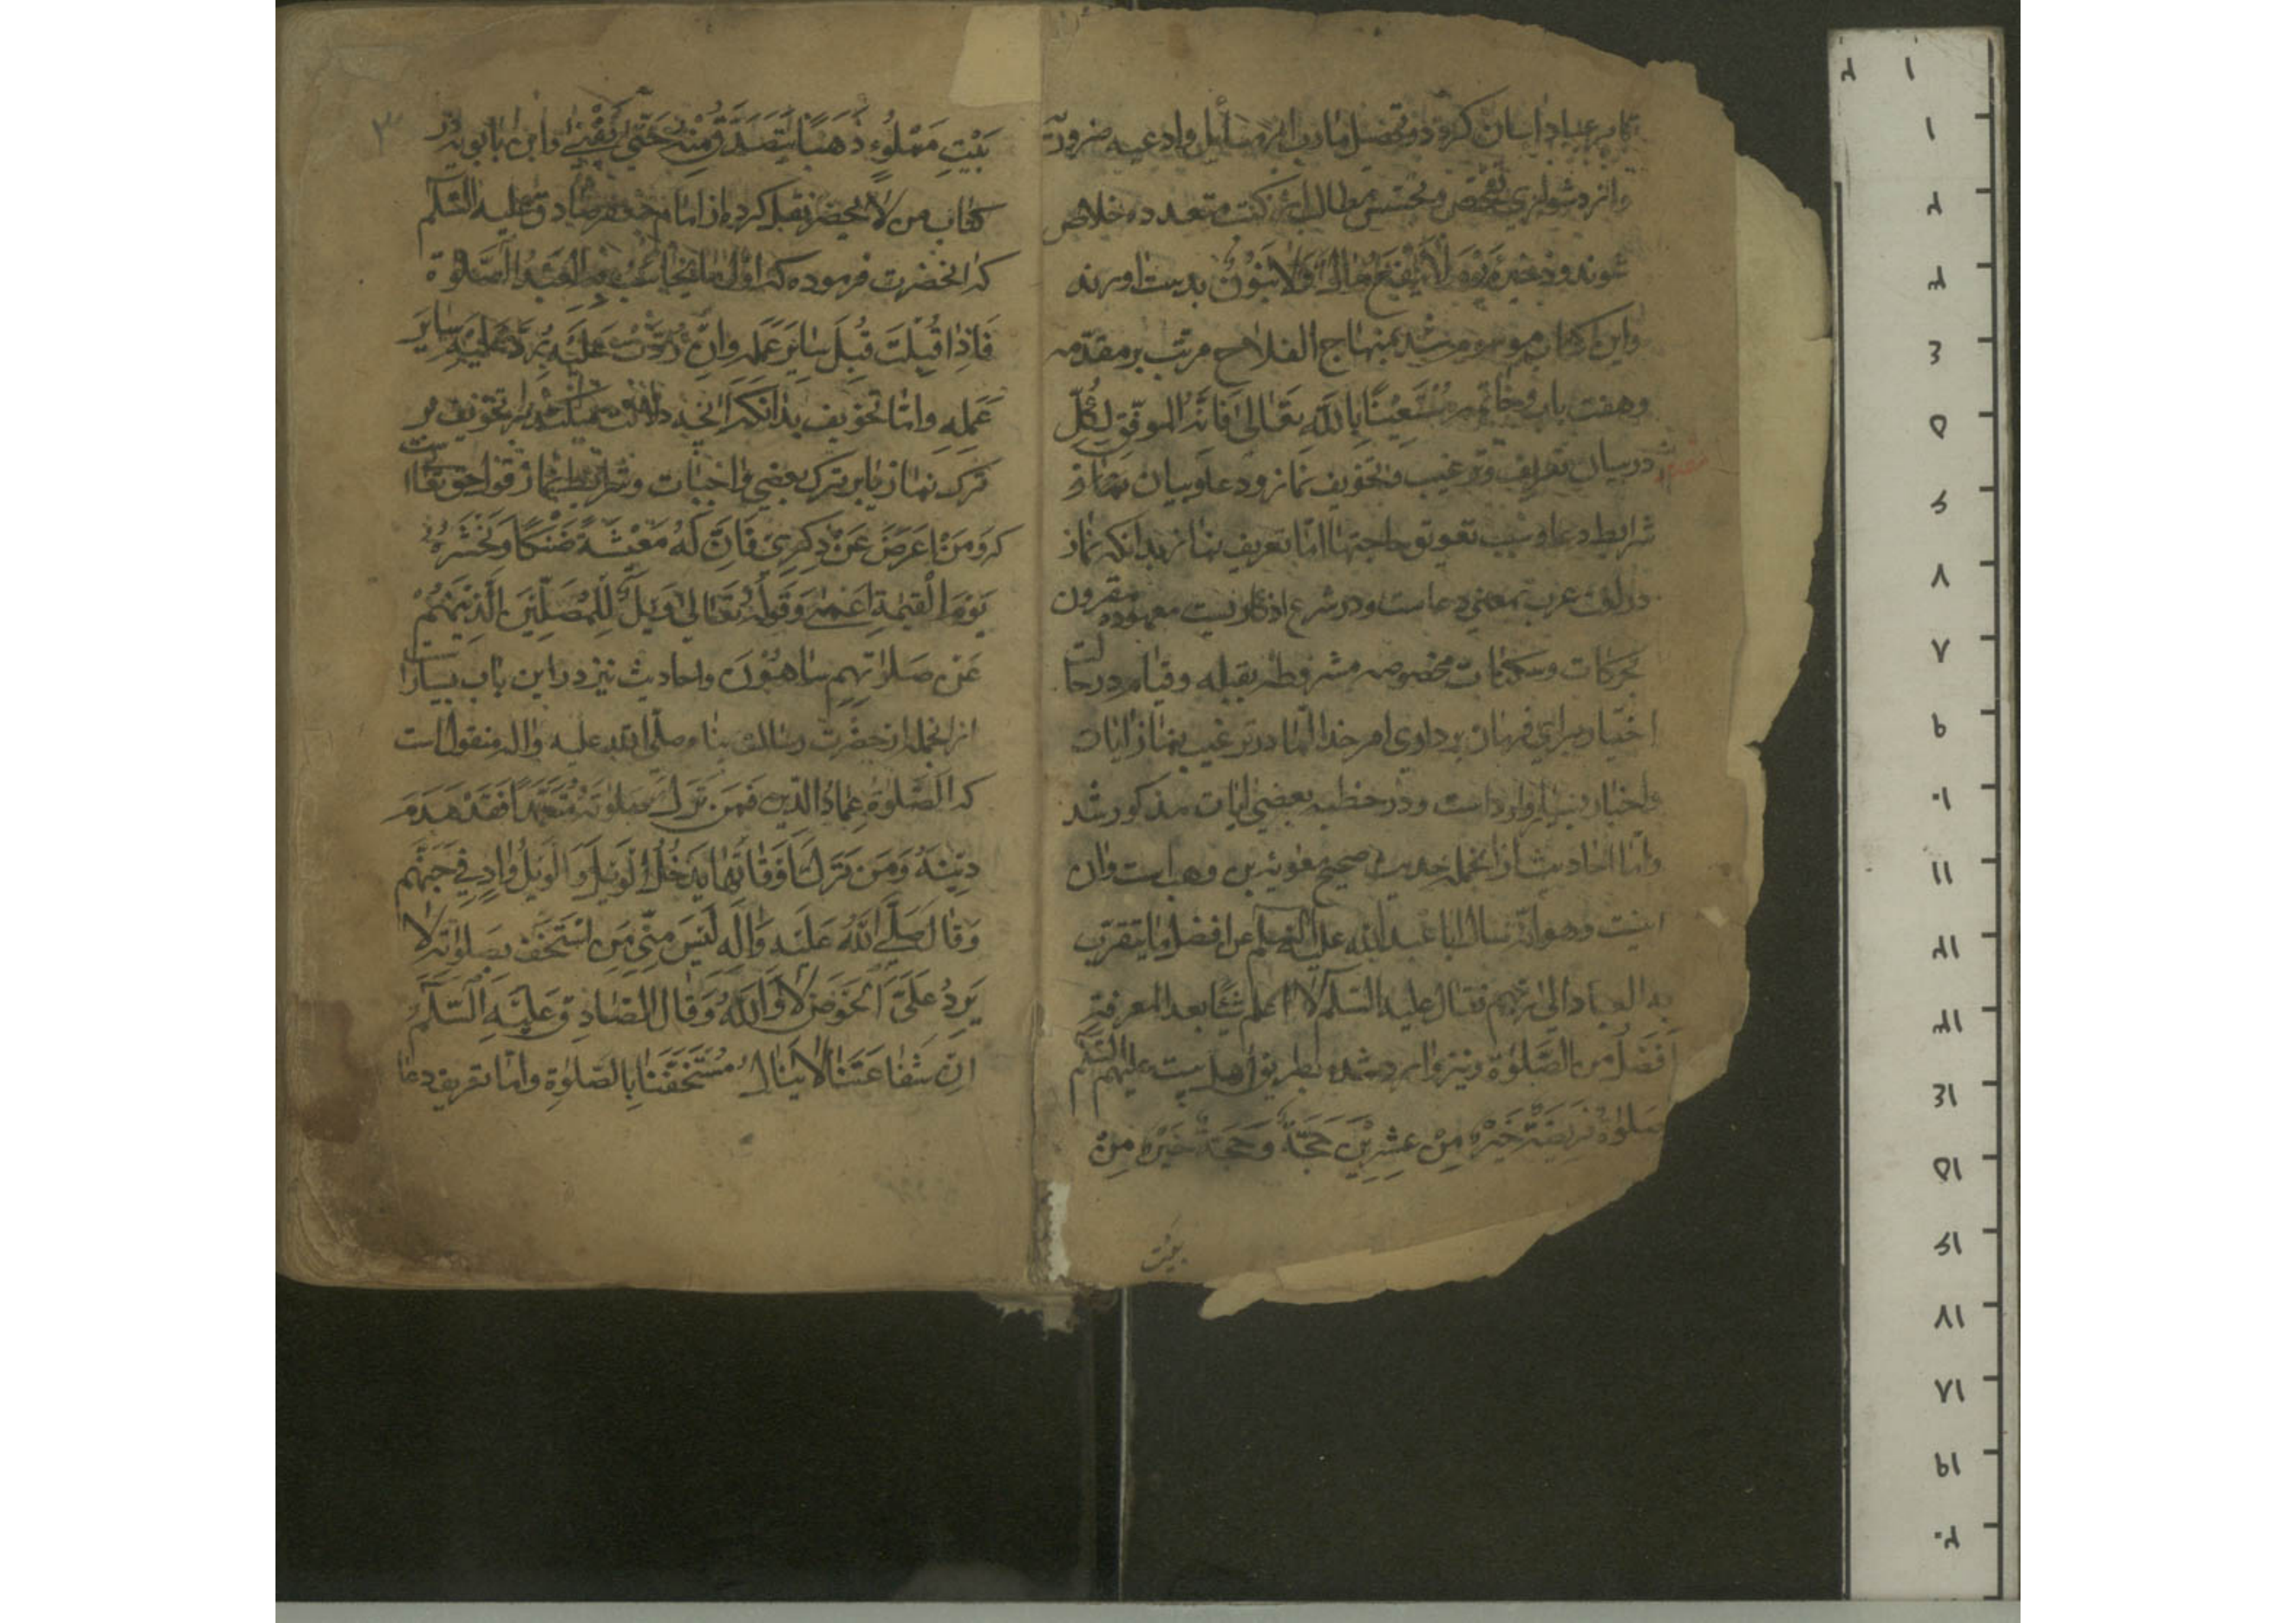 تا بر عباد اسان کردد و تحصیل مادرب از مسائل وادعیه ضروره
واز دشواری تفحص و تجسس مطالب از کتب متعدده خلاص
شوند و ذخیره یَوْمَ لاٰ یَنْفَعُ مٰالٌ وَلاٰ بَنُوْنَ بدست اورند
واین کتاب موسوم شد بمنهاج الفلاح مرتب بر مقدمه
وهفت باب وخاتمه مُسْتَعِیْنًا بِاللّٰهِ تَعٰالیٰ فَاِنَّهُ الموفّق لِکُلّ
مقدمه در بیان تعریف وترغیب وتخویف نماز ودعا وبیان نماز و
شرایط دعا وسبب تعویق حاجتها امّا تعریف نماز بدانکه نماز
در لغت عرب بمعنی دعاست ودر شرع اذکاریست معهوده مقرون
بحرکات وسکنات مخصوصه مشروطه بقبله وقیام در حالت
اختیار برای فرمان برداری امر خدا امّا در ترغیب نماز ایات
واخبار بسیار وارد است ودر خطبه بعضی ایات مذکور شد
وامّا احادیث از انجمله حدیث صحیح معویة بن وهب است وان
اینست وهو انّه سال ابا عبد الله علیه السّلم عن افضل ما یتقرّب
به العباد الی ربّهم فقال علیه السّلم لا اعلم شیئا بعد المعرفة
اَفْضَلُ من الصّلوٰة ونیز وارد شده بطریق اهل بیت علیهم السّلم
صَلوٰةٌ فَرِیضَةٌ خَیْرٌ مِنْ عِشْرِیْنَ حَجَّةً وَحَجَّةٌ خَیْرٌ مِنْ
بیت
٣
بَیْتٍ مَمْلُوءٍ ذَهَبًا یَتَصَدَّقُ مِنْهُ حَتّیٰ یَفْنیٰ وابن بابویه در
کتاب من لا یحضر نقل کرده از امام جعفر صادق علیه السّلم
که انحضرت فرموده که اوّل ما یحاسب به العبد الصّلوٰة
فَاِذٰا قُبِلَتْ قُبِلَ سٰایَرُ عَمَلِهِ وَاِنْ رُدَّتْ عَلَیْهِ رُدَّ عَلَیْهِ سٰایَر
عَمَلِهِ وامّا تخویف بدانکه انچه دلالت میکند بر تخویف بر
ترک نماز یا بر ترک بعضی واجبات وشرایط نماز قول حق تعالیست
که وَمَنْ اَعْرَضَ عَنْ ذِکْرِیْ فَاِنَّ لَهُ مَعِیْشَةً ضَنْکًا وَنَحْشُرُهُ
یَوْمَ الْقِیٰمَةِ اَعْمیٰ وَقَولُهُ تَعٰالیٰ فَوَیْلٌ لِلْمُصَلِّیْنَ الَّذِیْنَ هُمْ
عَنْ صَلوٰتِهِمْ سٰاهُوْنَ واحادیث نیز در این باب بسیار است
از انجمله از حضرت رسالت پناه صلّی الله علیه واله منقول است
که الصَّلوٰةُ عِمٰادُ الدّینِ فَمَنْ تَرَکَ صَلوٰتَهُ مُتَعَمِّدًا فَقَدْ هَدَمَ
دِیْنَهُ وَمَنْ تَرَکَ اَوْقٰاتَهٰا یَدْخُلُ الْوَیْلَ وَالْوَیْلُ وٰادٍ فِیْ جَهَنَّمَ
وَقٰالَ صَلَّی اللّٰهُ عَلَیْهِ وَاٰلِهِ لَیْسَ مِنّیْ مَنِ اسْتَخَفَّ بِصَلوٰتِهِ لاٰ
یَرِدُ عَلَیَّ الْحَوْضَ لاٰ وَاللّٰهِ وَقٰالَ الصّٰادِقُ عَلَیْهِ السَّلٰمُ
اِنَّ شَفٰاعَتَنٰا لاٰ یَنٰالُ مُسْتَخِفًّا بِالصّلوٰةِ وامّا تعریف دعا